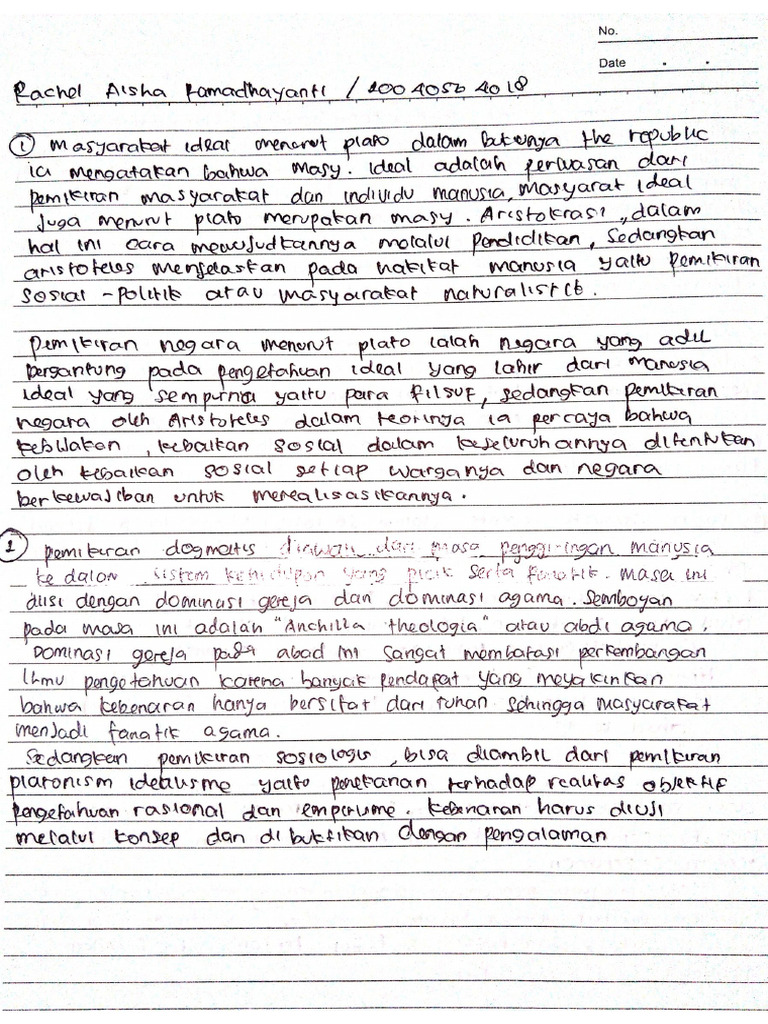 No.
Date . .
Rachel Aisha Ramadhayanti / 2004056 4018
① masyarakat ideal menurut plato dalam bukunya the republic
ia mengatakan bahwa masy. ideal adalah perluasan dari
pemikiran masyarakat dan individu manusia, masyarat ideal
juga menurut plato merupakan masy. Aristokrasi, dalam
hal ini cara mewujudkannya melalui pendidikan, sedangkan
aristoteles menjelaskan pada hakikat manusia yaitu pemikiran
sosial - politik atau masyarakat naturalistik.
pemikiran negara menurut plato ialah negara yang adil
bergantung pada pengetahuan ideal yang lahir dari manusia
ideal yang sempurna yaitu para filsuf, sedangkan pemikiran
negara oleh Aristoteles dalam teorinya ia percaya bahwa
kebijakan, kebaikan sosial dalam keseluruhannya ditentukan
oleh kebaikan sosial setiap warganya dan negara
berkewajiban untuk merealisasikannya.
2 pemikiran dogmatis diawali dari masa penggiringan manusia
ke dalam sistem kehidupan yang picik serta fanatik. masa ini
diisi dengan dominasi gereja dan dominasi agama. semboyan
pada masa ini adalah "Anchilla theologia" atau abdi agama.
Dominasi gereja pada abad ini sangat membatasi perkembangan
ilmu pengetahuan karena banyak pendapat yang meyakinkan
bahwa kebenaran hanya bersifat dari tuhan sehingga masyarakat
menjadi fanatik agama.
Sedangkan pemikiran sosiologis, bisa diambil dari pemikiran
platonism idealisme yaitu penekanan terhadap realitas objektif
pengetahuan rasional dan empirisme. kebenaran harus diuji
melalui konsep dan dibuktikan dengan pengalaman